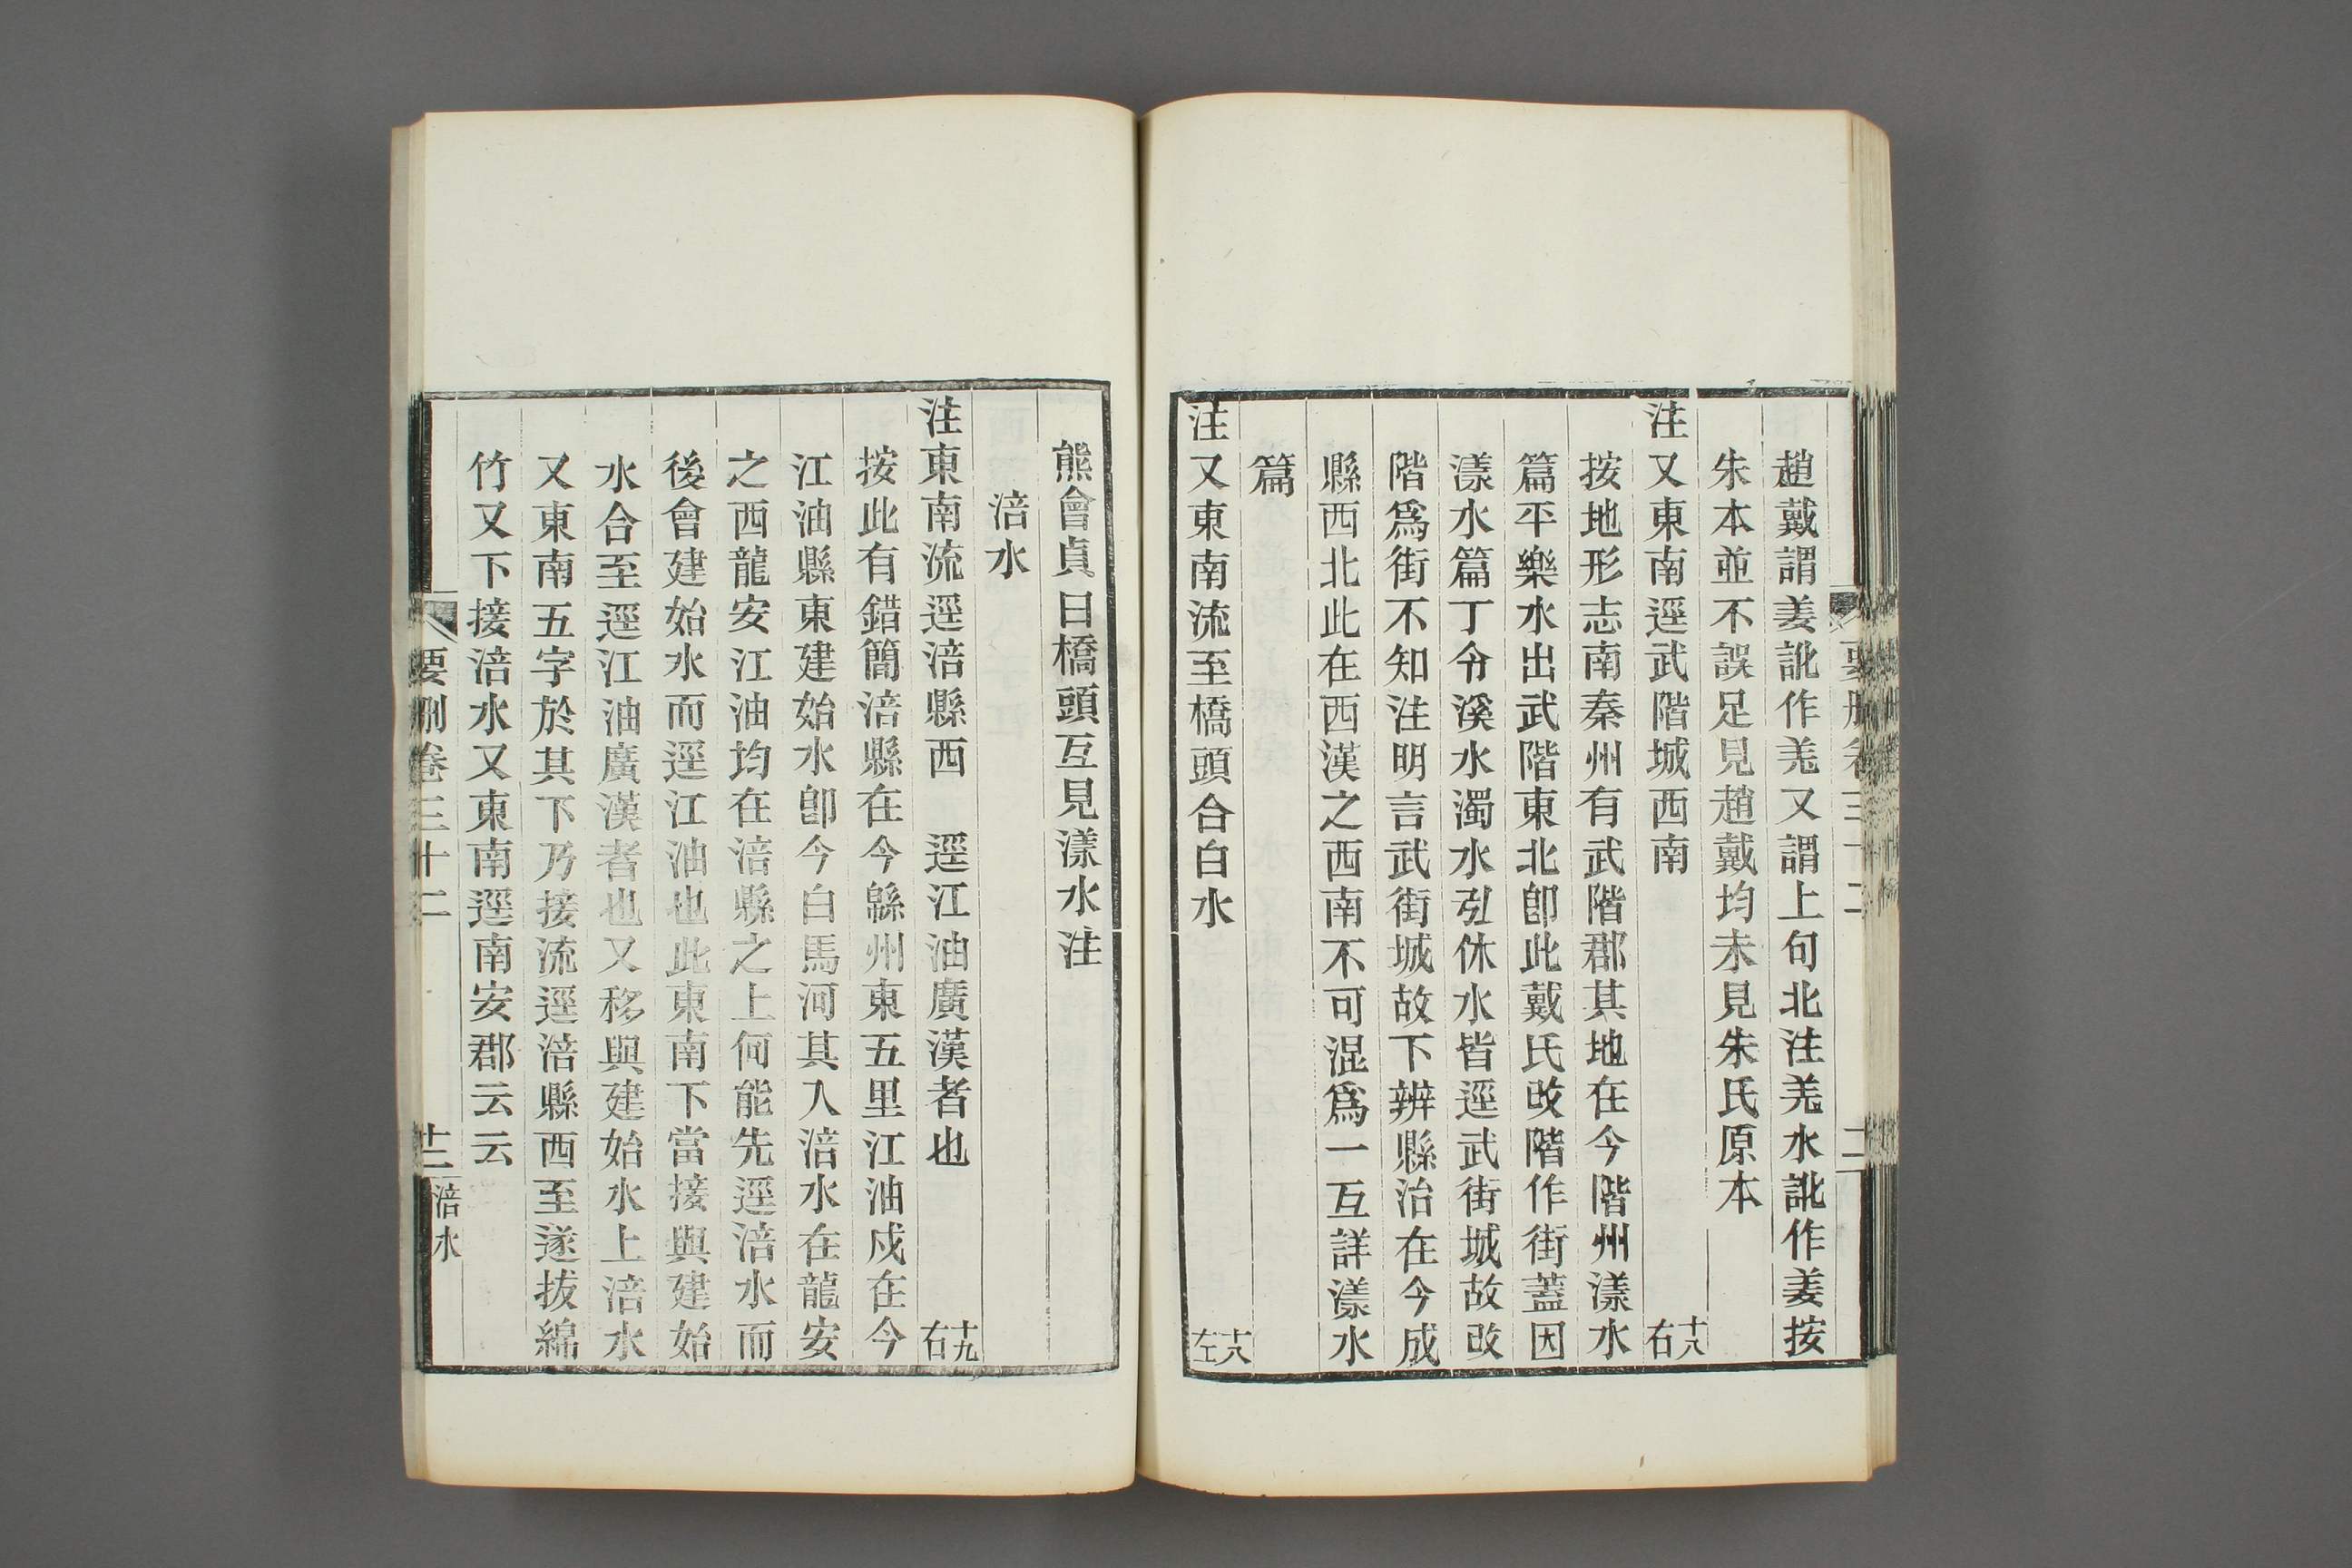 趙戴謂姜訛作羌又謂上句北注羌水訛作姜按
朱本並不誤足見趙戴均未見朱氏原本
注又東南逕武階城西南 十八右
按地形志南秦州有武階郡其地在今階州漾水
篇平樂水出武階東北卽此戴氏改階作街蓋因
漾水篇丁令溪水濁水弘休水皆逕武街城故改
階爲街不知注明言武街城故下辨縣治在今成
縣西北此在西漢之西南不可混爲一互詳漾水
篇
注又東南流至橋頭合白水 十八左
熊會貞曰橋頭互見漾水注
涪水
注東南流逕涪縣西 逕江油廣漢者也 十九右
按此有錯簡涪縣在今緜州東五里江油戍在今
江油縣東建始水卽今白馬河其入涪水在龍安
之西龍安江油均在涪縣之上何能先逕涪水而
後會建始水而逕江油也此東南下當接與建始
水合至逕江油廣漢者也又移與建始水上涪水
又東南五字於其下乃接流逕涪縣西至遂拔綿
竹又下接涪水又東南逕南安郡云云
要刪卷三十二
十二
涪水